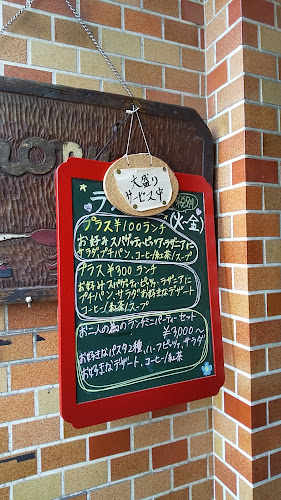 大盛り
サービス中
(火~金)
プラス¥100ランチ
お好みスパゲッティ・ピッツァ・ラザニアに
サラダプチパン、コーヒー/紅茶/スープ
プラス¥300ランチ
お好みスパゲッティ・ピッツァ・ラザニアに
プチパン サラダお好きなデザート
コーヒー/紅茶/スープ
お二人の為のランチミニパーティーセット
¥3000~
お好きなパスタ2種、ハーフピッツァ、サラダ
お好きなデザート、コーヒー/紅茶